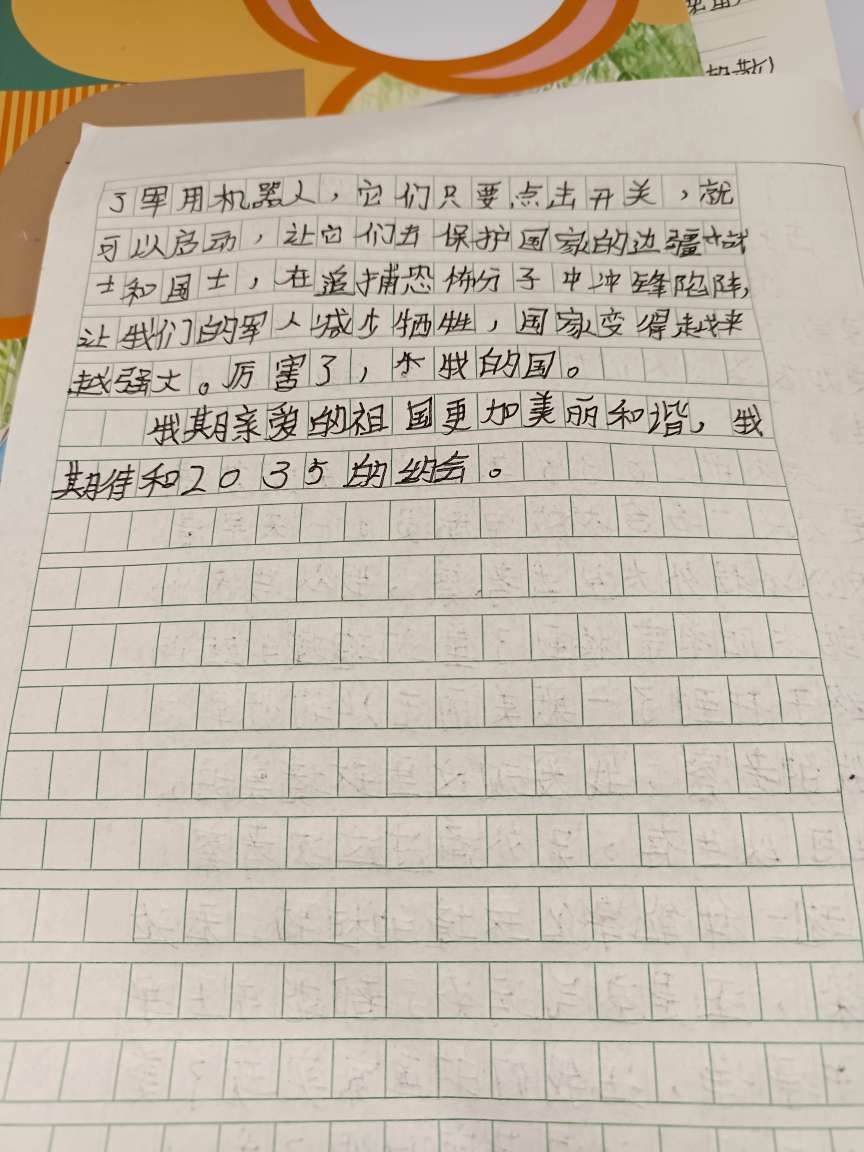 了军用机器人，它们只要点击开关，就
可以启动，让它们去保护国家的边疆战
士和国士，在追捕恐怖分子中冲锋陷阵，
让我们的军人减少牺牲，国家变得越来
越强大。厉害了，我的国。
我期亲爱的祖国更加美丽和谐，我
期待和2035的约会。